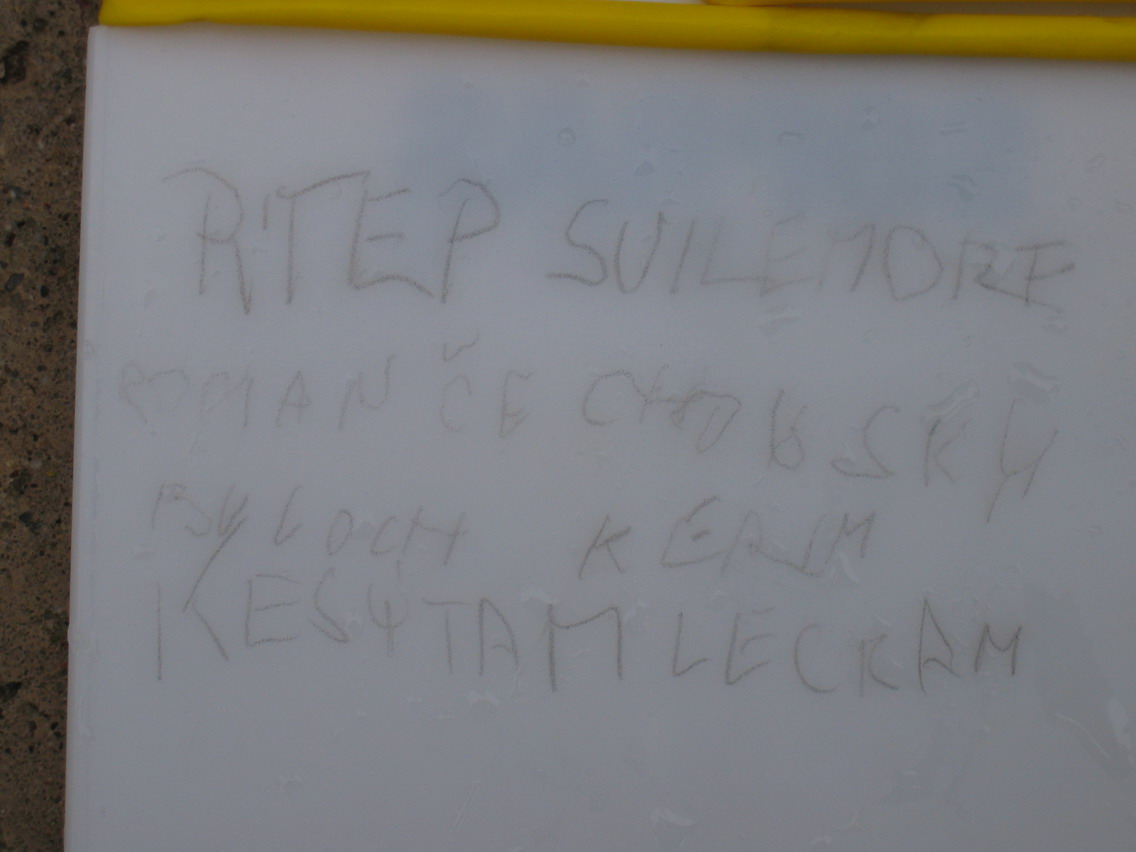 RITEP SUILEMORF
ROMAN ČECHOVSKÝ
BYLOCH KERIM
KESÝTAM LECRAM